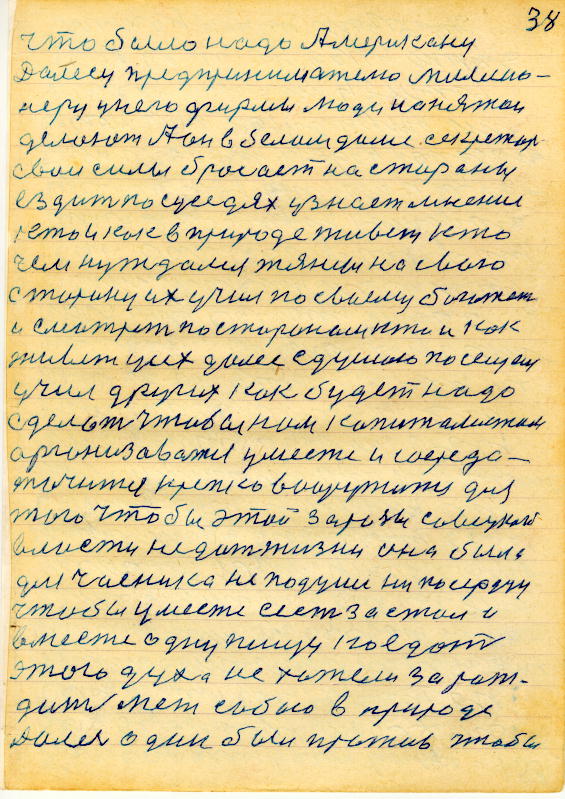 38
что было надо Американу
Далесу предпринимателю милио-
неру у него фирмы люди нанятои
делоют А он в белом доме секретар
свои силы бросает на стораны
ездит по суседях узнает мнения
кто и как в природе живет кто
чем нуждался тянем на свою
сторону их учил по своему
и смотрет по сторонам кто и как
живет у их далее с думою посещал
учил других как будет надо
сделат чтобы нам капиталистам
организаватся умести и сосредо-
точится крепко вооружится для
того чтобы этой заразы совецкой
власти не дат жизни она была
для часника не подуши ни по сердцу
чтобы уместе сест за стол и
вместе одну пищу поедат
этого духа не хотели зарож-
дат меж собою в природе
Далес один был против чтобы